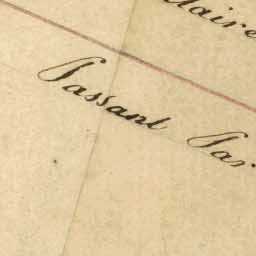 laire
Passant Par